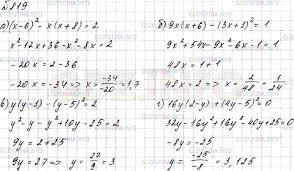 №819
а)(x-6)² - x(x+8) = 2
x² - 12x + 36 - x² - 8x = 2
-20x = 2 - 36
-20x = -34 => x = -34/-20 = 1,7
б) 9x(x+6) - (3x+1)² = 1
9x² + 54x - 9x² - 6x - 1 = 1
48x = 1+1
48x = 2 => x = 2/48 = 1/24
в) y(y-1) - (y-5)² = 2
y² - y - y² + 10y - 25 = 2
9y = 2 + 25
9y = 27 => y = 27/9 = 3
г) 16y(2-y) + (4y-5)² = 0
32y - 16y² + 16y² - 40y + 25 = 0
-8y = -25
y = -25/-8 = 3,125